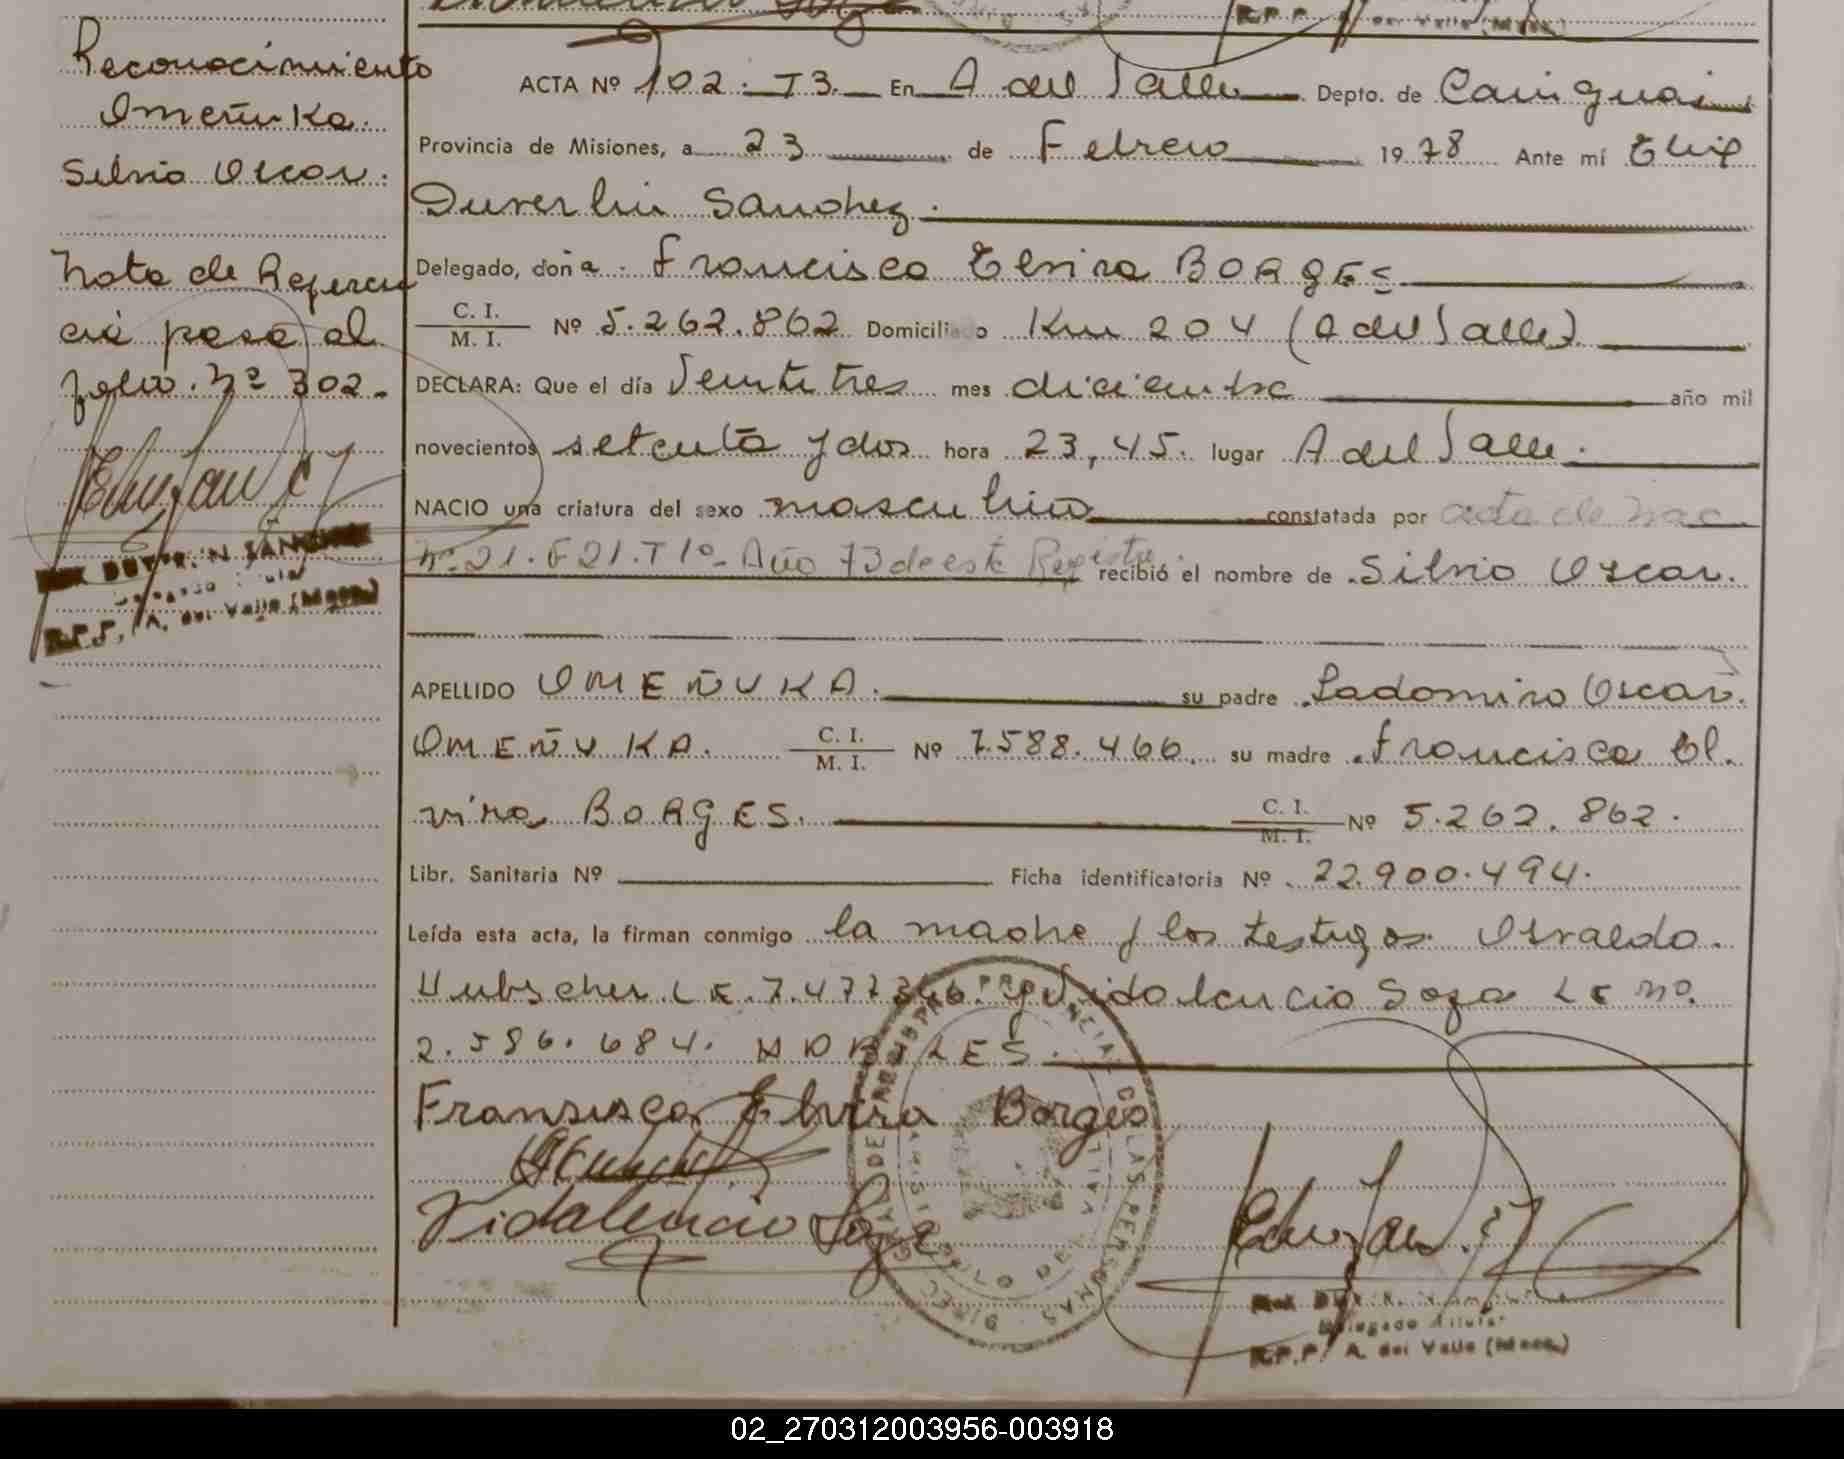 Reconocimiento
Omeñuka.
Silvio Oscar.
Nota de Referen
cia pasa al
folio. Nº 302.-
R.P.P. A. del Valle (Mnes.)
ACTA Nº 102. T3. En A del Valle Depto. de Cainguas
Provincia de Misiones, a 23 de Febrero 1978 Ante mí Elix
Duverlin Sanchez.
Delegado, doña. Francisca Elvira BORGES
C. I. / M. I. Nº 5.262.862 Domiciliado Km 204 (A del Valle)
DECLARA: Que el día Veintitres mes diciembre año mil
novecientos setenta y dos hora 23,45. lugar A del Valle.
NACIO una criatura del sexo masculino constatada por acta de Nac.
Nº 21. F 21. T 1º- Año 73 de este Registro. recibió el nombre de Silvio Oscar.
APELLIDO OMEÑUKA. su padre Ladomiro Oscar.
OMEÑUKA. C. I. / M. I. Nº 7.588.466. su madre Francisca El.
vira BORGES. C. I. / M. I. Nº 5.262.862.
Libr. Sanitaria Nº Ficha identificatoria Nº 22.900.494.
Leída esta acta, la firman conmigo la madre y los testigos Osvaldo.
Hubscher L E. 7.477 y Vidalencio Soza L E nº.
2.586.684. HABILES.
Fransisca Elvira Borges
Vidalencio Soza
Delegado Titular
R.P.P. A. del Valle (Mnes.)
02_270312003956-003918